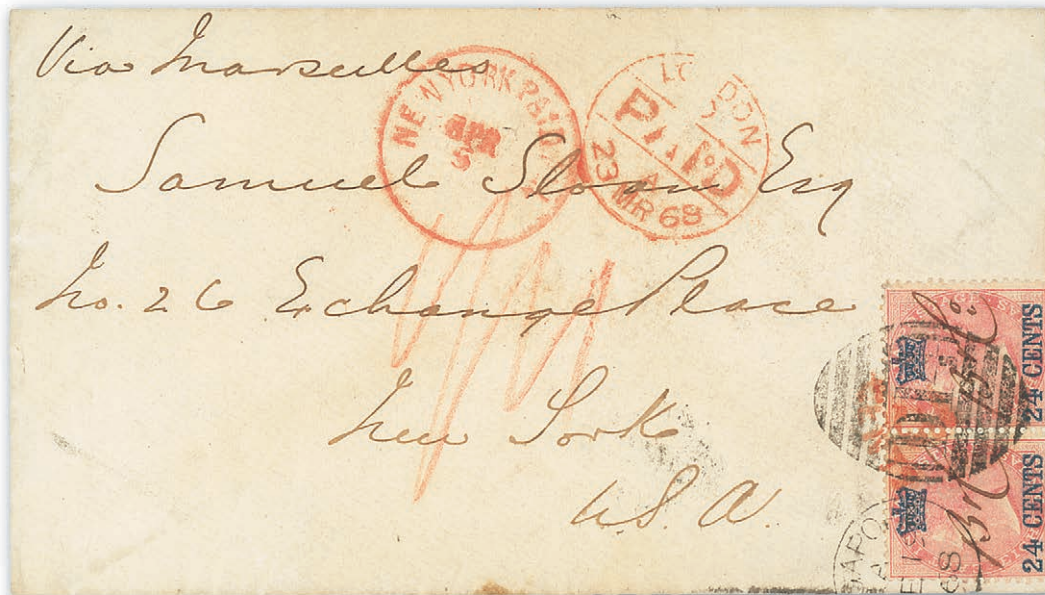 Via Marseilles
NEW YORK PAID
APR
5
LONDON
PAID
A
23 MR 68
Samuel Sloan Esq
No. 26 Exchange Place
New York
U.S.A.
24 CENTS
24 CENTS